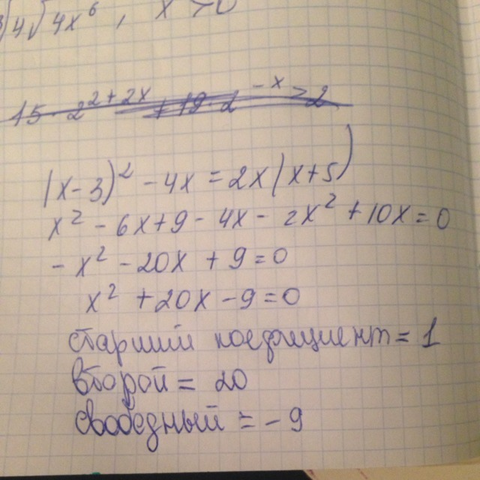 ∛4√4x⁶, x > 0
15·2²⁺²ˣ + 19·2⁻ˣ > 2
(x-3)² - 4x = 2x(x+5)
x² - 6x + 9 - 4x - 2x² + 10x = 0
-x² - 20x + 9 = 0
x² + 20x - 9 = 0
старший коефициент = 1
второй = 20
свободный = -9